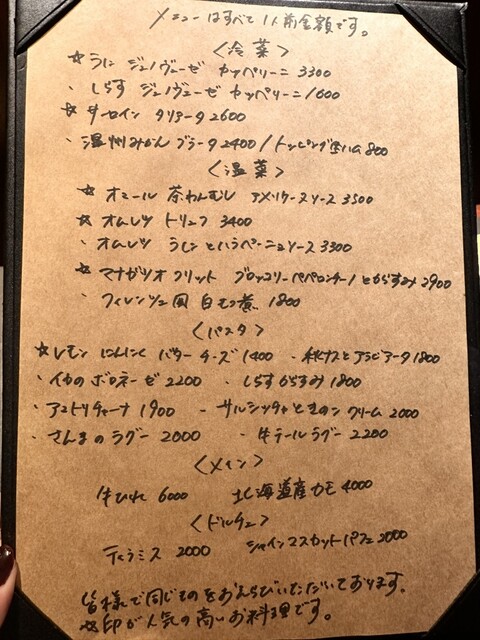 メニューはすべて1人前金額です。
〈冷菜〉
☆うに ジェノヴェーゼ カッペリーニ 3300
・しらす ジェノヴェーゼ カッペリーニ 1600
☆サーロイン タリアータ 2600
・温州みかん ブラータ 2400 / トッピング生ハム 800
〈温菜〉
☆オマール 茶わんむし アメリケーヌソース 3500
☆オムレツ トリュフ 3400
・オムレツ うにとハラペーニョソース 3300
☆マナガツオ フリット ブロッコリーペペロンチーノとからすみ 2900
・フィレンツェ風 白モツ煮 1800
〈パスタ〉
☆レモン にんにく バターチーズ 1400 ・秋ナスとアラビアータ 1800
・イカのボロネーゼ 2200 ・しらすからすみ 1800
・アマトリチャーナ 1900 ・サルシッチャときのこ クリーム 2000
・さんまのラグー 2000 ・牛テールラグー 2200
〈メイン〉
牛ひれ 6000 北海道産カモ 4000
〈ドルチェ〉
ティラミス 2000 シャインマスカットパフェ 2000
皆様で同じものをおえらびいただいております。
☆印が人気の高いお料理です。